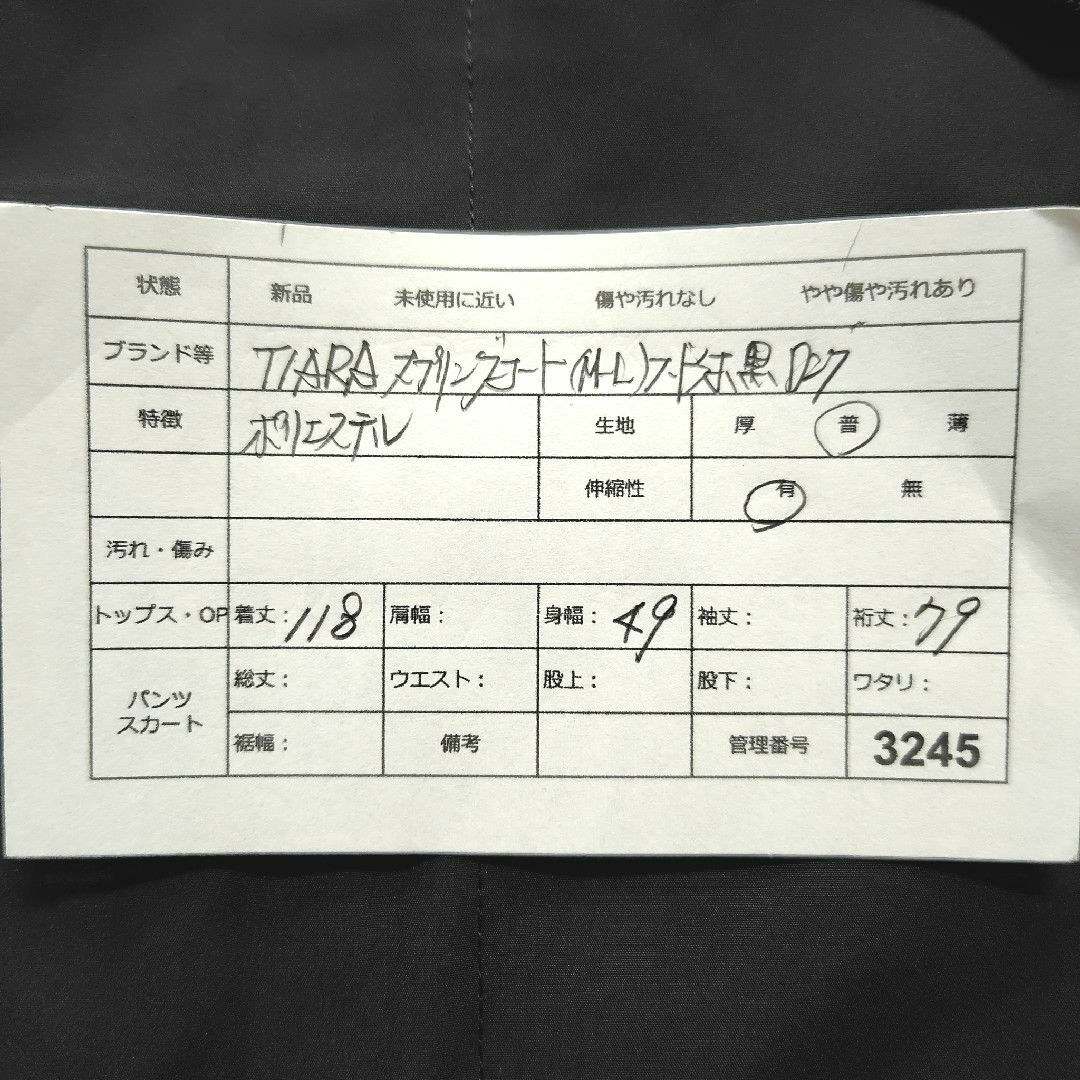 状態 新品 未使用に近い 傷や汚れなし やや傷や汚れあり
ブランド等 TIARA スプリングコート(M-L)フード 黒
特徴 ポリエステル 生地 厚 普 薄
伸縮性 有 無
汚れ・傷み
トップス・OP 着丈:118 肩幅: 身幅:49 袖丈: 裄丈:79
パンツ スカート 総丈: ウエスト: 股上: 股下: ワタリ:
裾幅: 備考 管理番号 3245